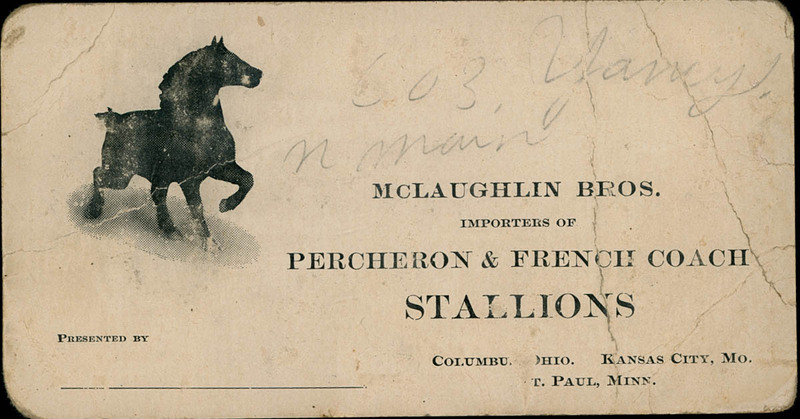 603,
n main
McLaughlin Bros.
IMPORTERS OF
PERCHERON & FRENCH COACH
STALLIONS
Presented by
Columbu. Ohio. Kansas City, Mo.
T. Paul, Minn.